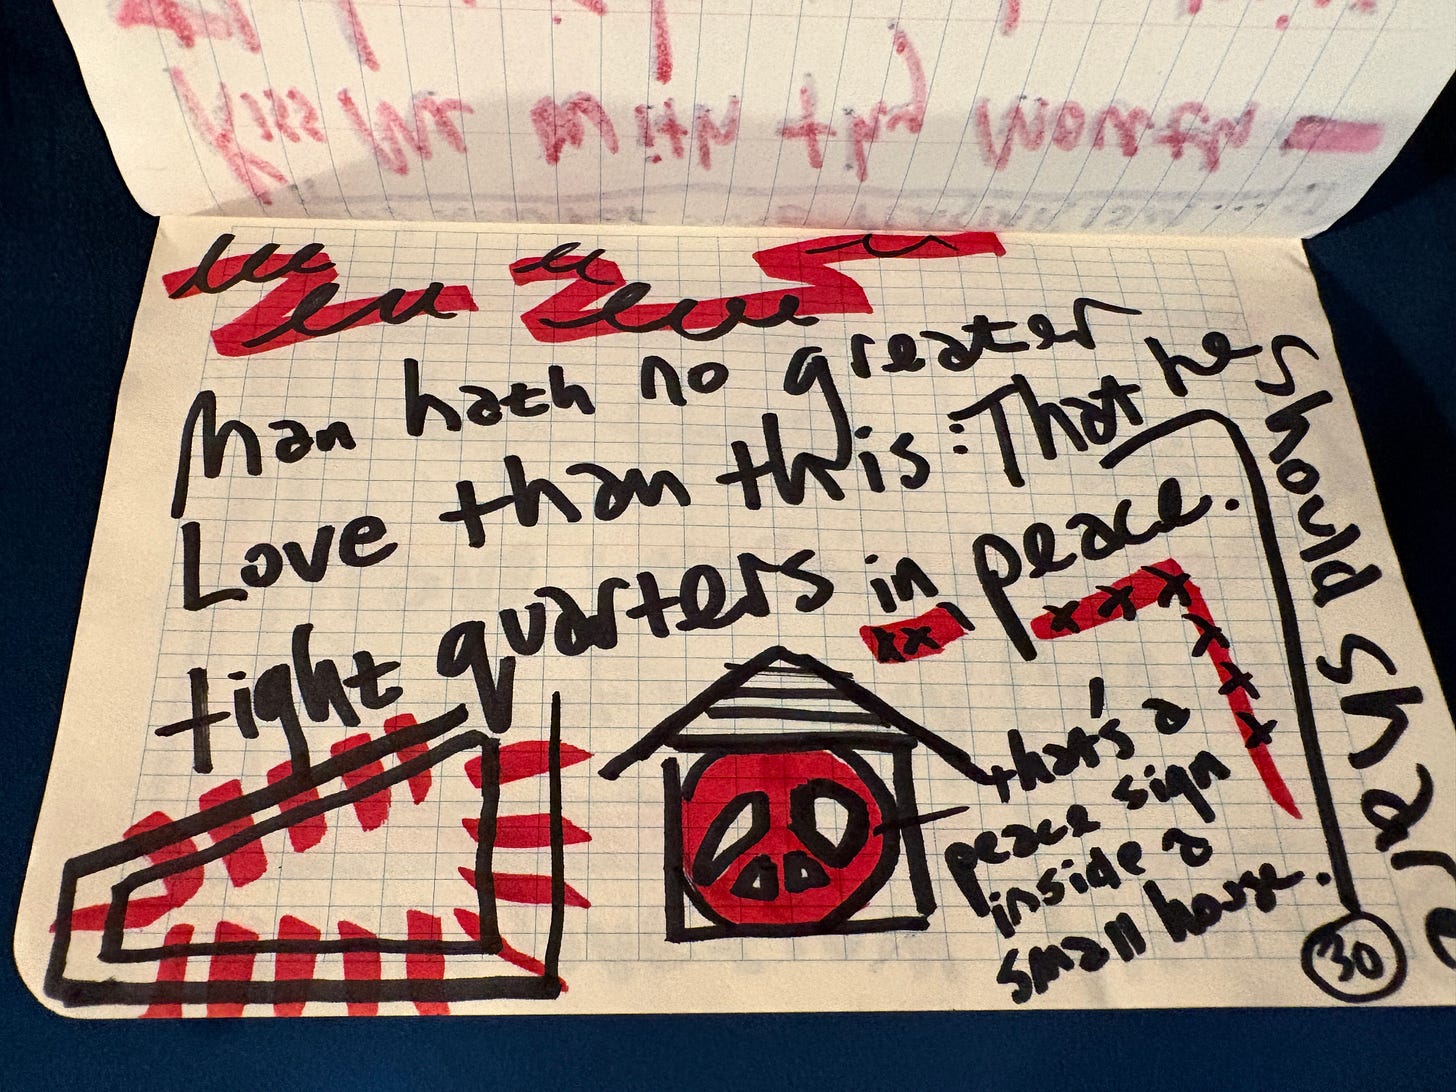 Man hath no greater
Love than this: That he
should share
tight quarters in peace.
that's a
peace sign
inside a
small house.
30